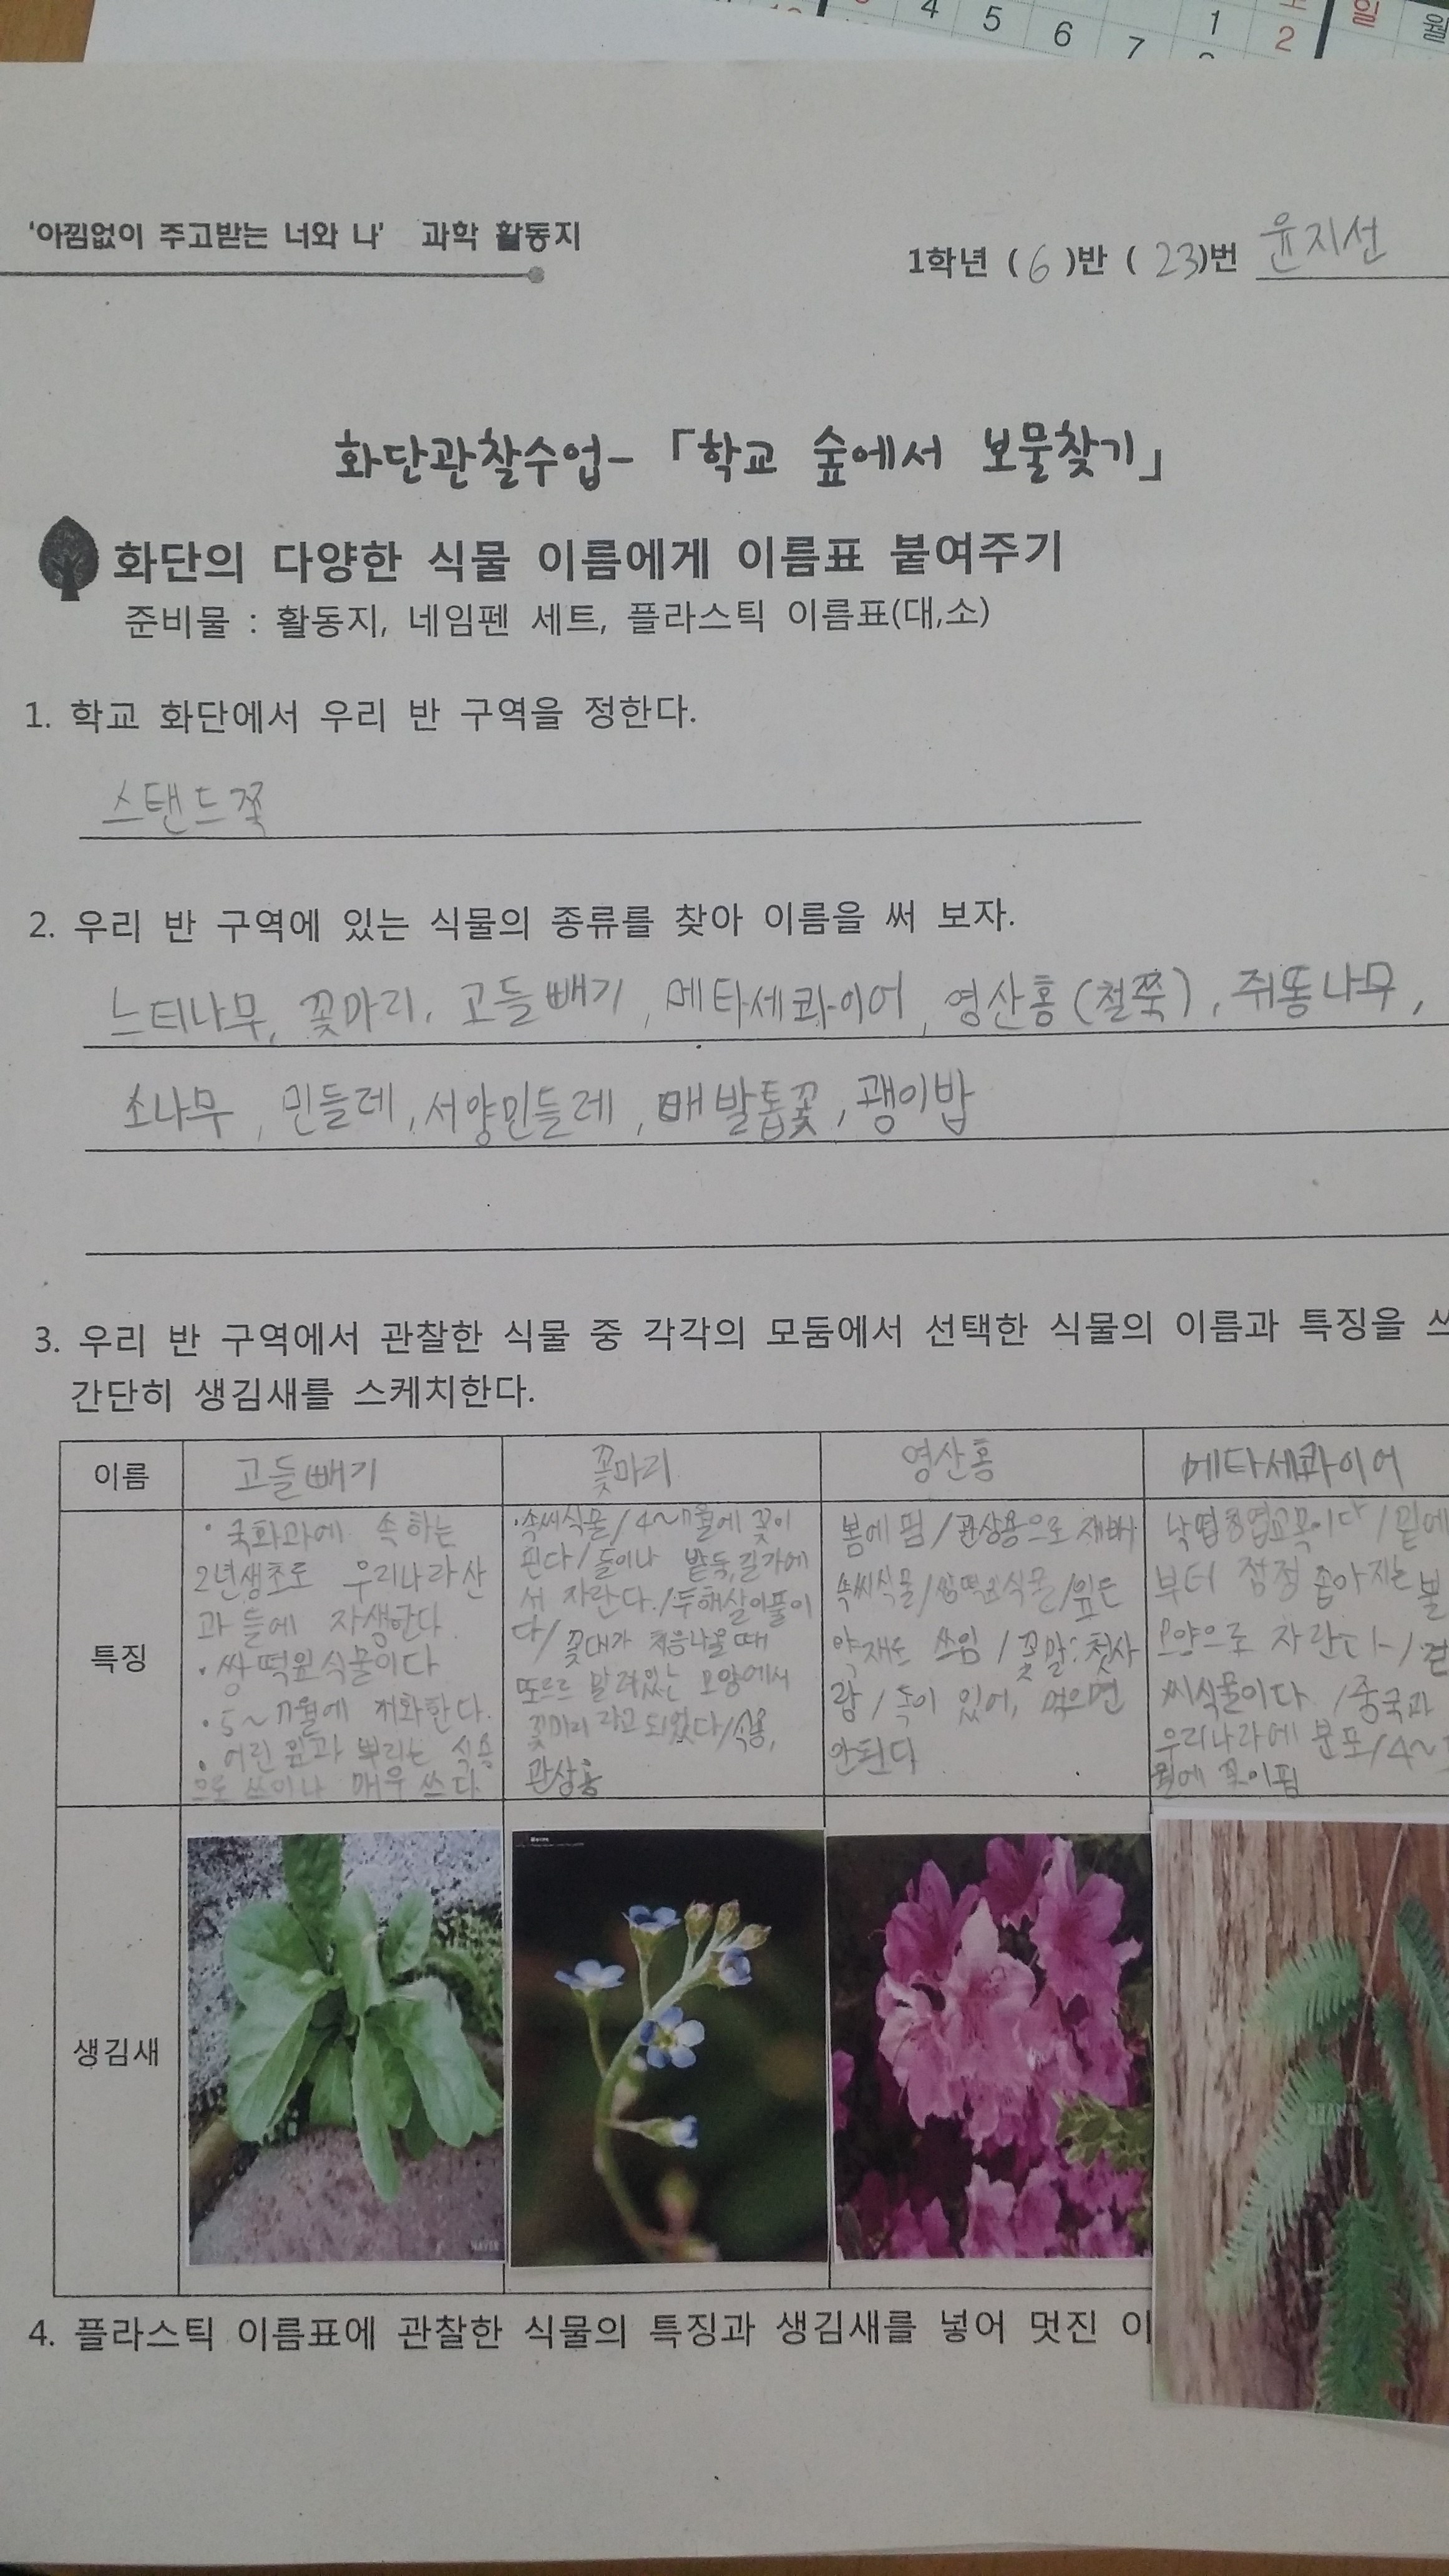 4 5 6 7 1 2 일 월
'아낌없이 주고받는 너와 나' 과학 활동지
1학년 ( 6 )반 ( 23)번 윤지선
화단관찰수업-「학교 숲에서 보물찾기」
화단의 다양한 식물 이름에게 이름표 붙여주기
준비물 : 활동지, 네임펜 세트, 플라스틱 이름표(대,소)
1. 학교 화단에서 우리 반 구역을 정한다.
스탠드쪽
2. 우리 반 구역에 있는 식물의 종류를 찾아 이름을 써 보자.
느티나무, 꽃마리, 고들빼기, 메타세콰이어, 영산홍(철쭉), 쥐똥나무,
소나무, 민들레, 서양민들레, 매발톱꽃, 괭이밥
3. 우리 반 구역에서 관찰한 식물 중 각각의 모둠에서 선택한 식물의 이름과 특징을 쓰
간단히 생김새를 스케치한다.
이름 고들빼기 꽃마리 영산홍 메타세콰이어
특징
· 국화과에 속하는
2년생초로 우리나라산
과 들에 자생한다.
· 쌍떡잎식물이다
· 5~7월에 개화한다.
· 어린 잎과 뿌리는 식용
으로 쓰이나 매우 쓰다
· 속씨식물/4~7월에 꽃이
핀다/들이나 밭둑,길가에
서 자란다./두해살이풀이
다/ 꽃대가 처음나올 때
또르르 말려있는 모양에서
꽃마리 라고 되었다/식용,
관상용
봄에 핌/관상용으로 재배
속씨식물/쌍떡잎식물/잎은
약재로 쓰임/꽃말:첫사
랑/독이 있어, 먹으면
안된다
낙엽침엽교목이다/밑에
부터 점점 좁아지는 뿔
모양으로 자란다/겉
씨식물이다 /중국과
우리나라에 분포/4~
월에 꽃이핌
생김새
NAVER
4. 플라스틱 이름표에 관찰한 식물의 특징과 생김새를 넣어 멋진 이